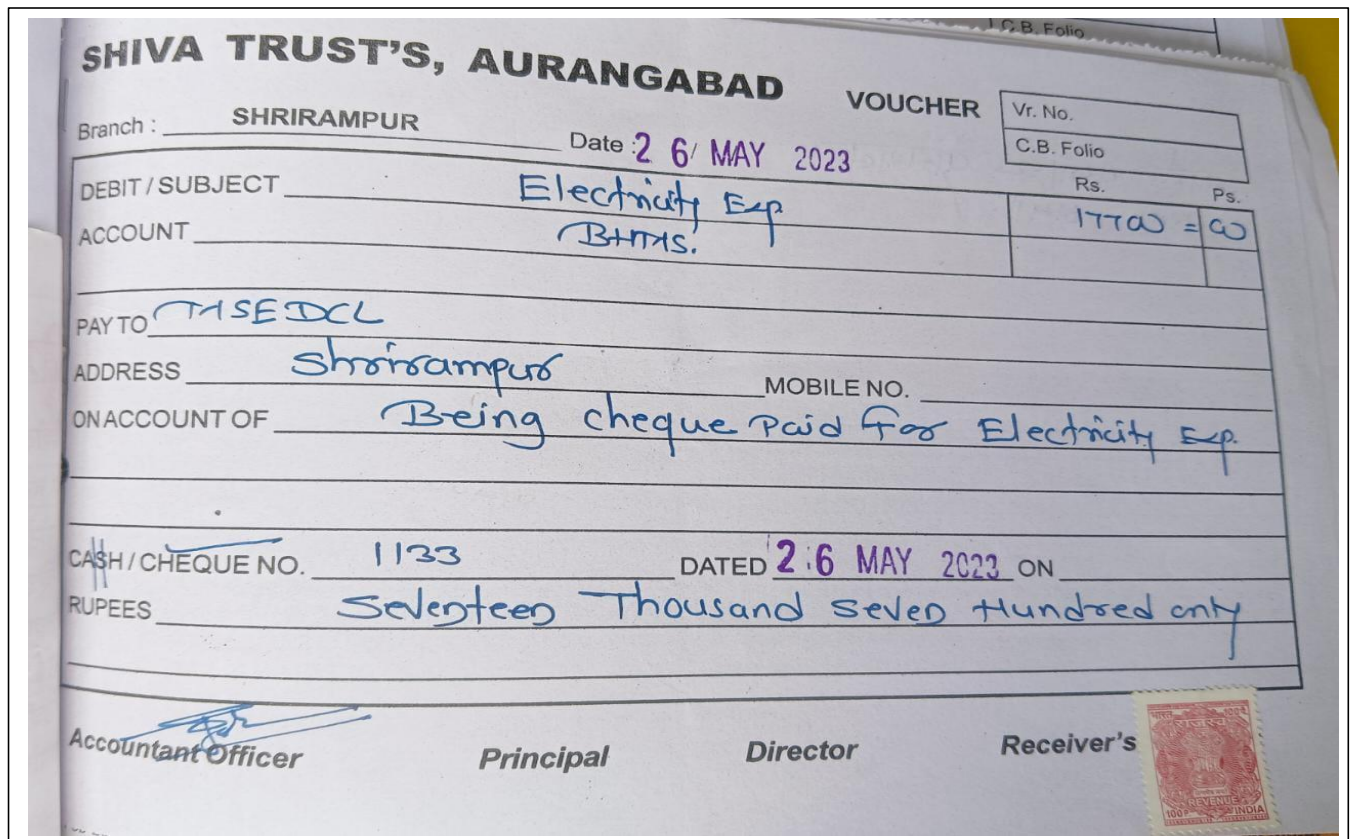 J.C.B. Folio
SHIVA TRUST'S, AURANGABAD
VOUCHER
Vr. No.
C.B. Folio
Branch : SHRIRAMPUR
Date : 2 6/ MAY 2023
Rs. Ps.
DEBIT / SUBJECT Electricity Exp 17700 = 00
ACCOUNT BHMS.
PAY TO MSEDCL
ADDRESS Shrirampur MOBILE NO.
ON ACCOUNT OF Being cheque Paid For Electricity Exp.
CASH / CHEQUE NO. 1133 DATED 2 6 MAY 2023 ON
RUPEES Seventeen Thousand Seven Hundred only
Accountant Officer Principal Director Receiver's
भारत राजस्व
REVENUE
INDIA